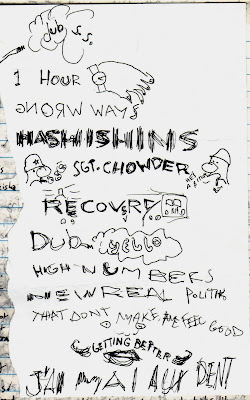 dub s.s.
1 HOUR
WRONG WAY
HASHISHINS
SGT. CHOWDER
RECOVERY
DUB HELLO
HIGH NUMBERS
NEW REAL POLITIK
THAT DON'T MAKE ME FEEL GOOD
GETTING BETTER
J'AI MAL AUX DENT